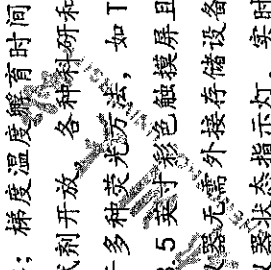 ；梯度温度孵育时间
试剂开放 各种科研和
多种荧光方法，如T
5英寸彩色触摸屏且
仪器无需外接存储设备
仪器状态指示灯 实时